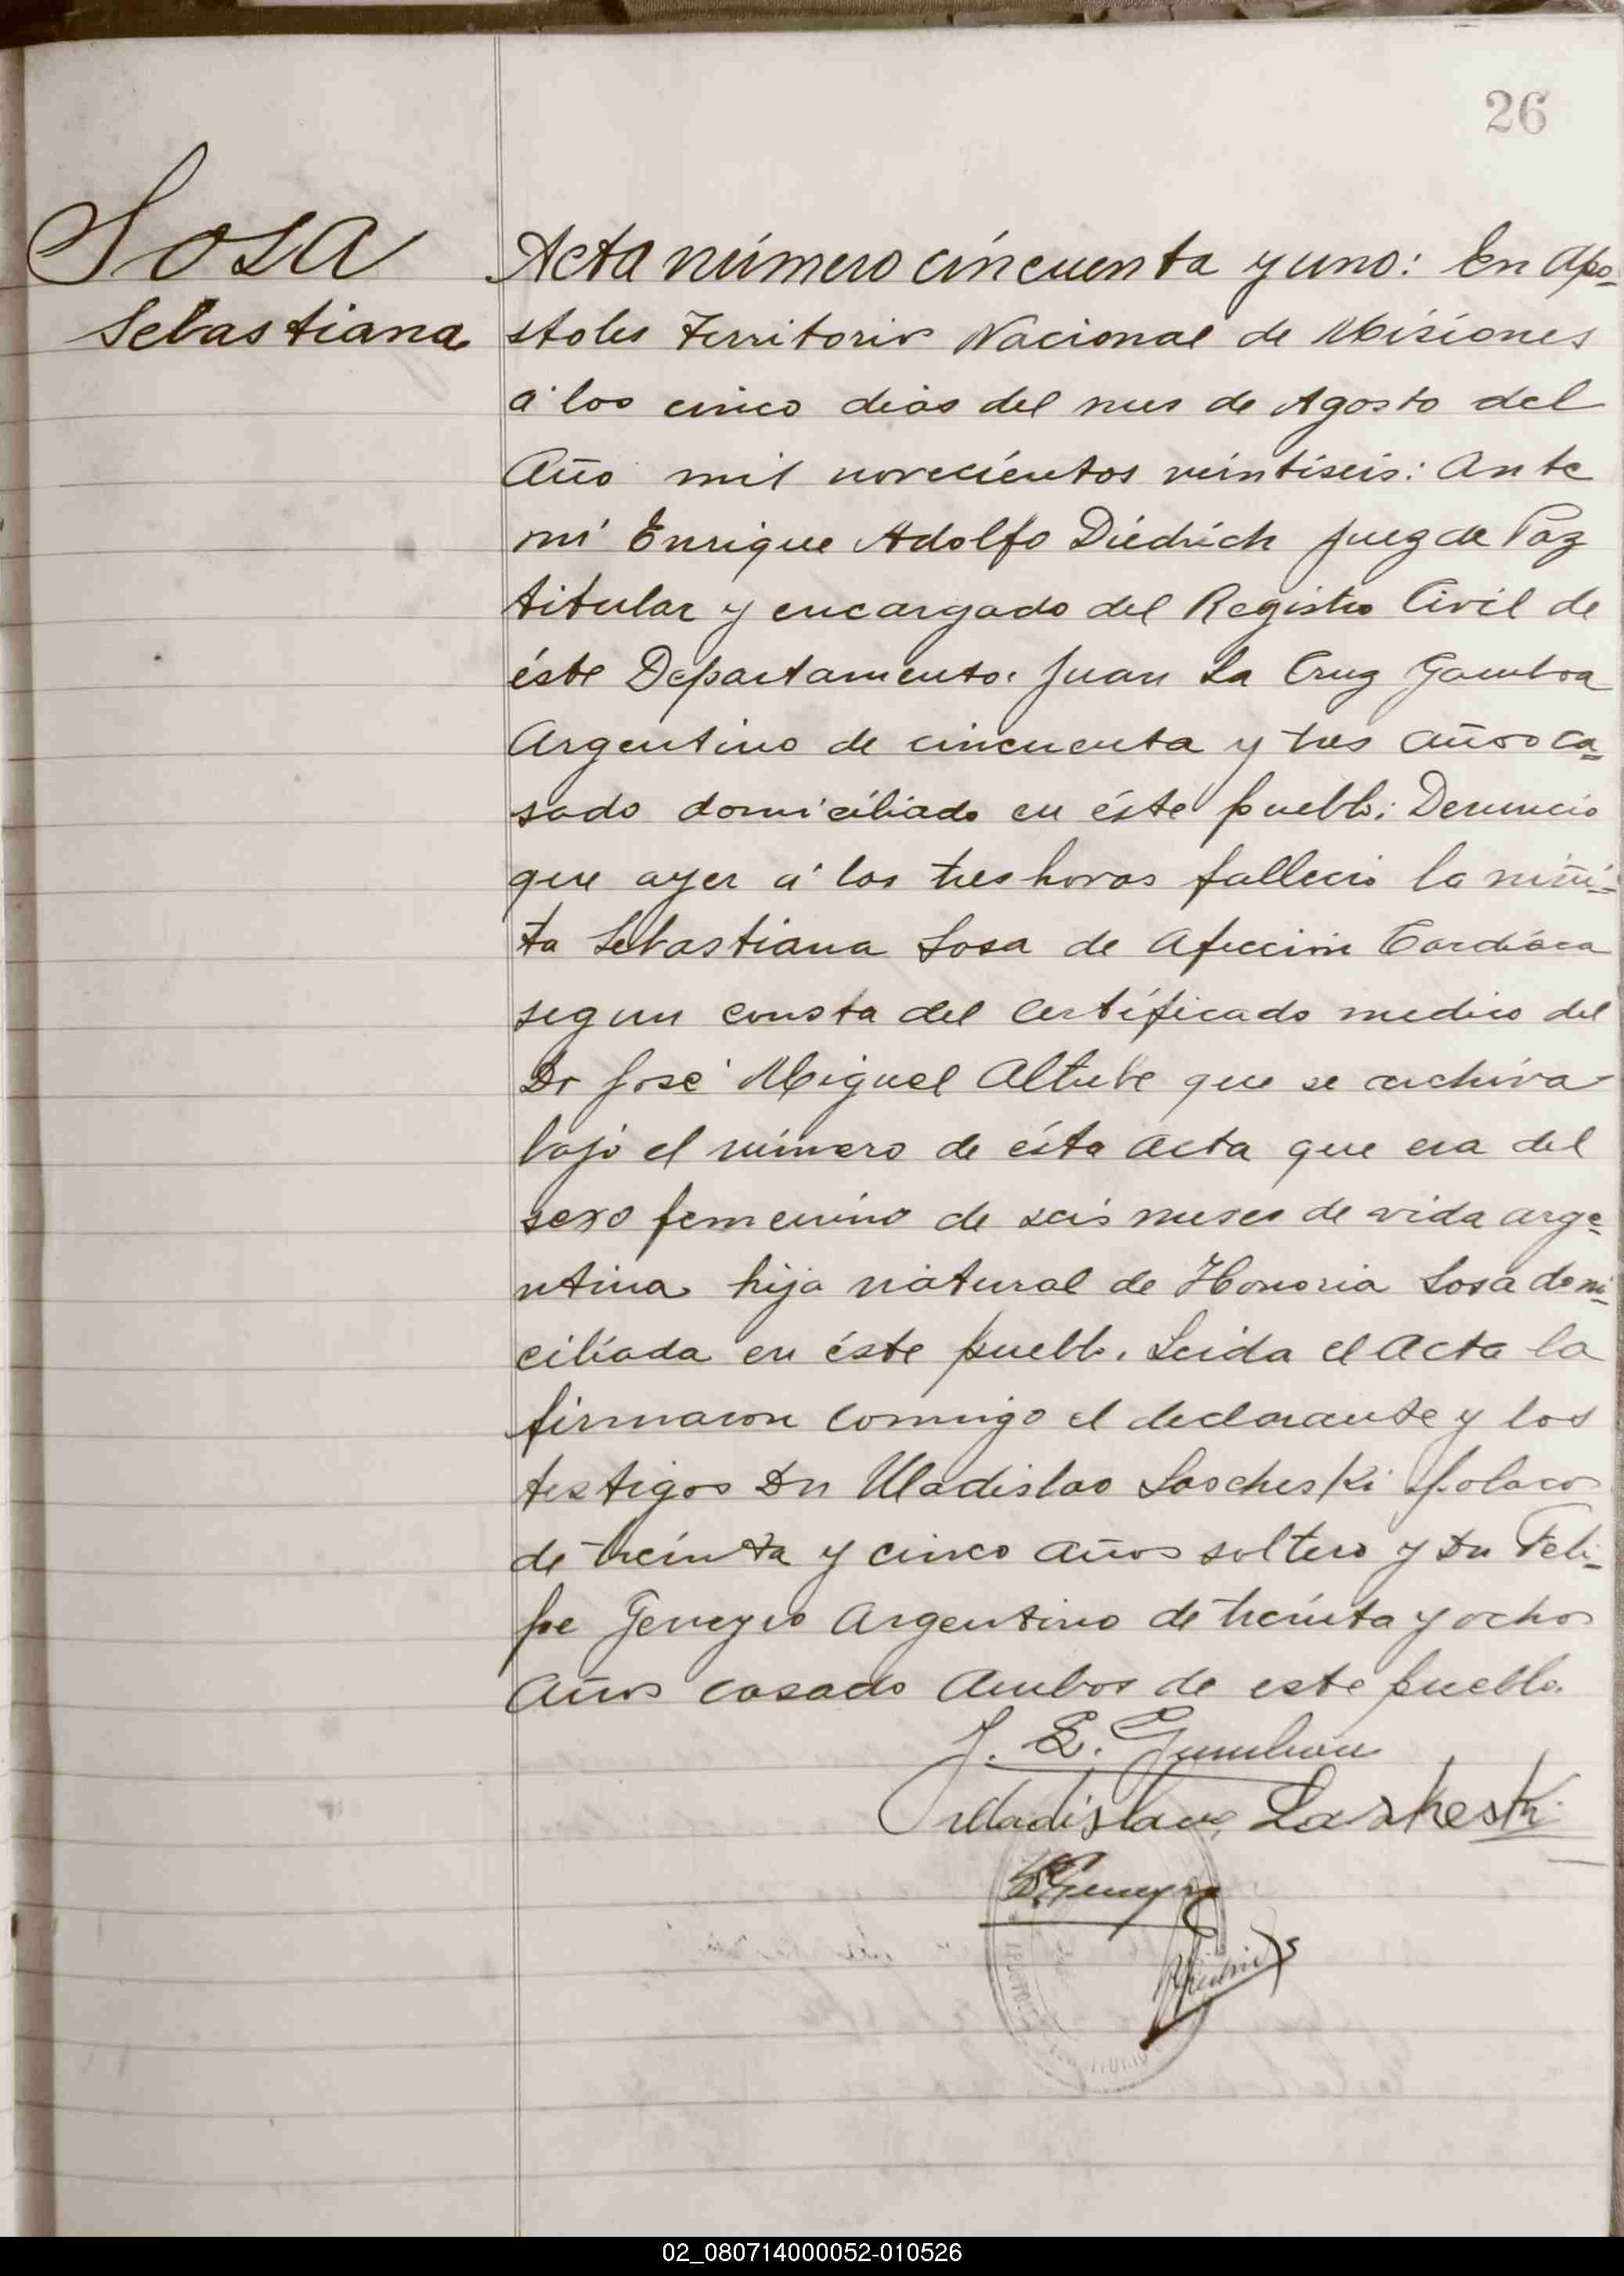 26
Sosa
Sebastiana
Acta número cincuenta y uno: En Apo-
stoles Territorio Nacional de Misiones
á los cinco dias del mes de Agosto del
Año mil novecientos veintiseis: Ante
mi Enrique Adolfo Diedrich Juez de Paz
titular y encargado del Registro Civil de
éste Departamento. Juan La Cruz Gamboa
Argentino de cincuenta y tres años ca-
sado domiciliado en éste pueblo; Denuncio
que ayer á las tres horas fallecio la niñi-
ta Sebastiana Sosa de Afección Cardiaca
segun consta del Certificado medico del
Dr José Miguel Altube que se archiva
bajo el número de ésta acta que era del
sexo femenino de seis meses de vida arge-
ntina hija natural de Honoria Sosa domi-
ciliada en éste pueblo. Leida el Acta la
firmaron Conmigo el declarante y los
testigos Dn Uladislao Lascheski polaco
de treinta y cinco Años soltero y Dn Feli-
pe Geneyro Argentino de treinta y ocho
Años casado Ambos de este pueblo.
J. L. Gamboa
Uladislao Lasheski
APOSTOLES
02_080714000052-010526